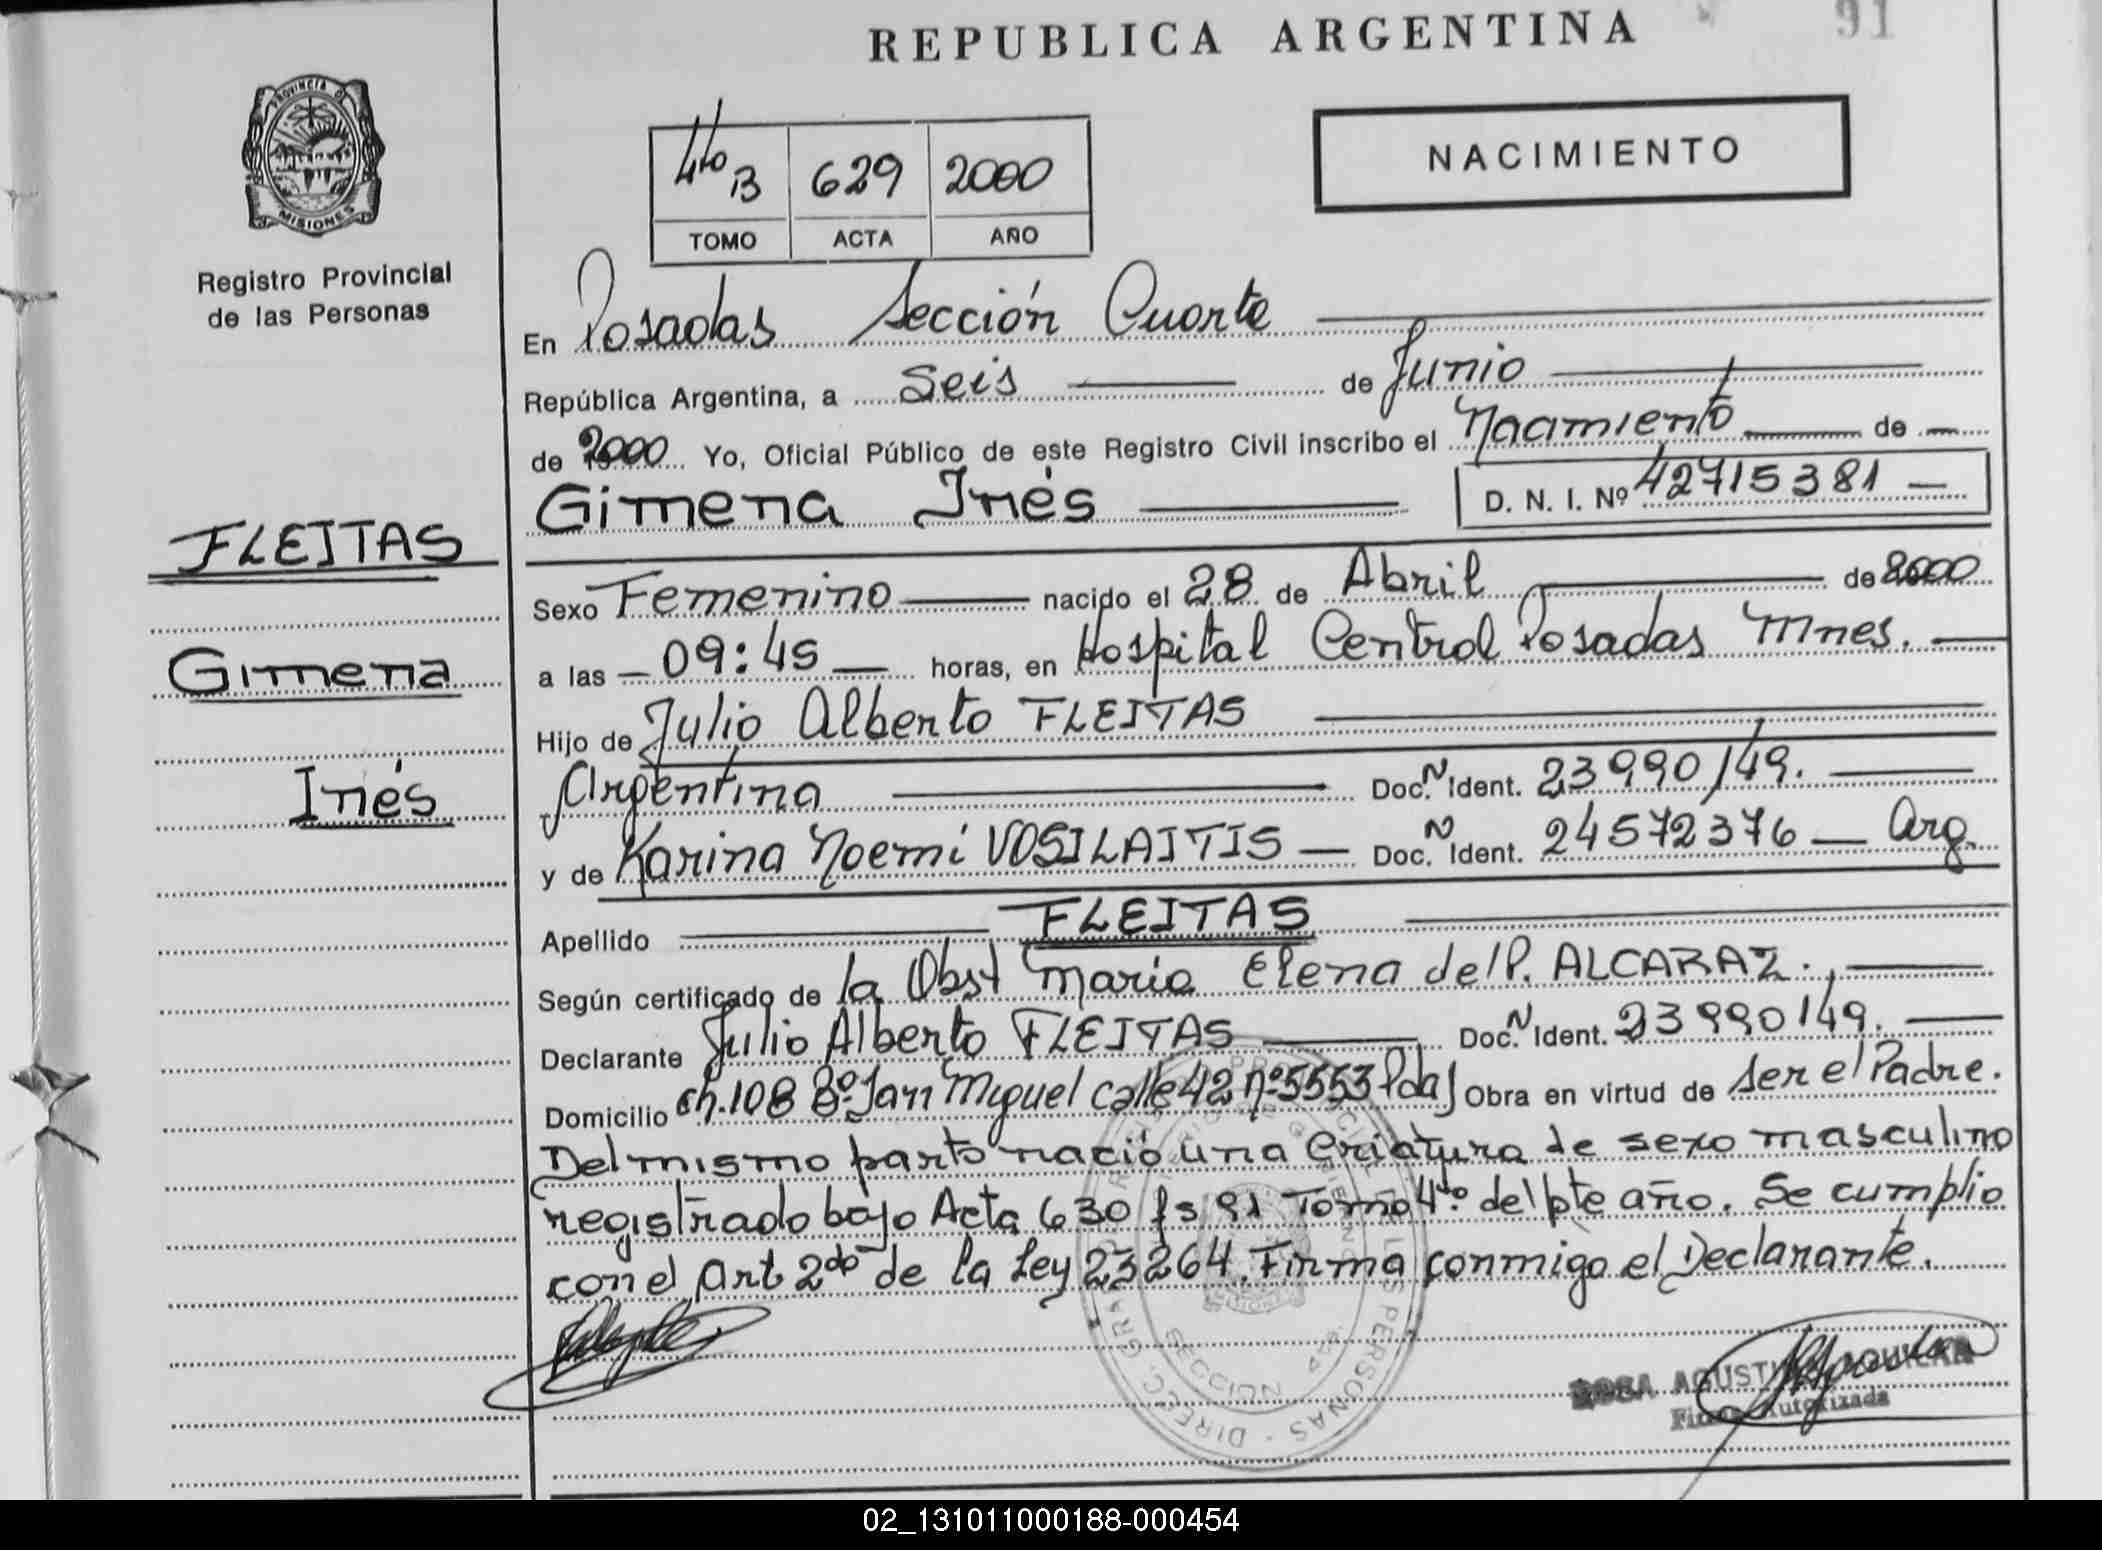 REPUBLICA ARGENTINA
91
PROVINCIA DE
MISIONES
Registro Provincial
de las Personas
4to B 629 2000
TOMO ACTA AÑO
NACIMIENTO
En Posadas Sección Cuarta
República Argentina, a Seis de Junio
de 2000 Yo, Oficial Público de este Registro Civil inscribo el Nacimiento de
Gimena Inés D. N. I. Nº 42715381
FLEITAS
Gimena
Inés
Sexo Femenino nacido el 28 de Abril de 2000
a las 09:45 horas, en Hospital Central Posadas Mnes.
Hijo de Julio Alberto FLEITAS
Argentina Doc. N Ident. 23990149.
y de Karina Noemí VOSILAITIS Doc. N Ident. 24572376 Arg.
Apellido FLEITAS
Según certificado de la Obst Maria Elena del P. ALCARAZ.
Declarante Julio Alberto FLEITAS Doc. N Ident. 23990149.
Domicilio ch. 108 Bº San Miguel calle 42 nº 5553 Pdas Obra en virtud de ser el Padre.
Del mismo parto nació una criatura de sexo masculino
registrado bajo Acta 630 fs 91 Tomo 4to. del pte año. Se cumplio
con el Art 2do de la Ley 23264. Firma conmigo el Declarante.
ROSA AGUSTINA AGUILAR
Firma Autorizada
02_131011000188-000454